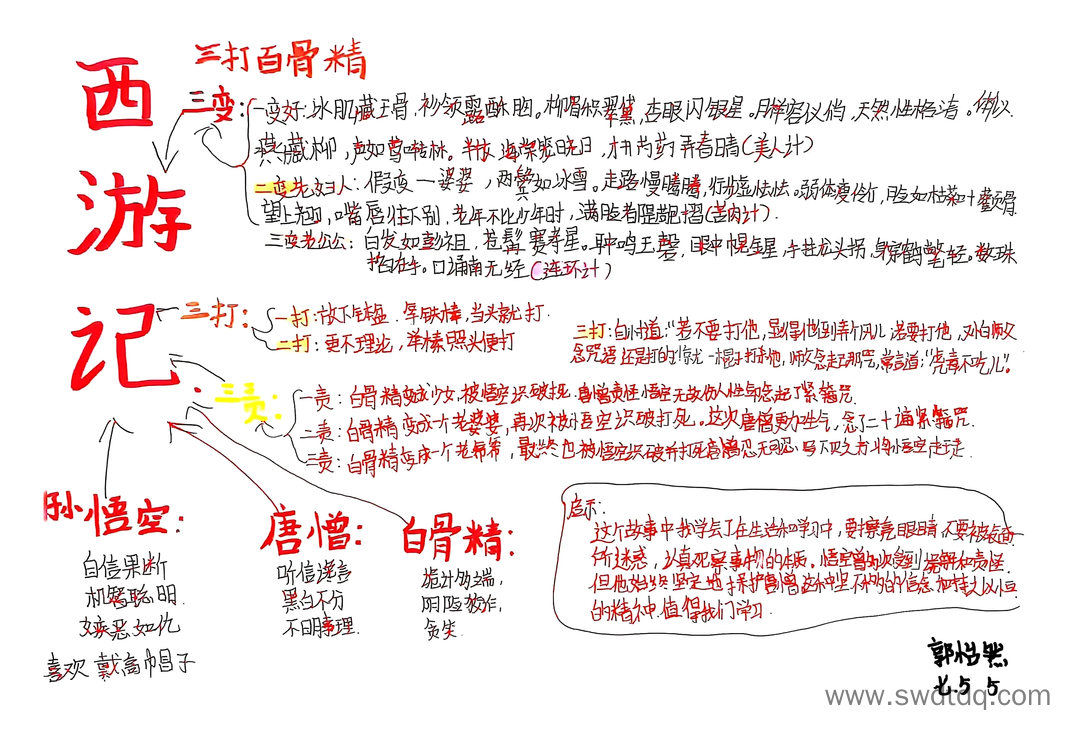 西游记
三打白骨精
三变:
一变好:冰肌藏玉骨,衫领露酥胸。柳眉积翠黛,杏眼闪银星。月样容仪俏,天然性格清。体似
燕藏柳,声如莺啭林。半放海棠笼晓日,才开芍药弄春晴(美人计)
二变老妇人:假变一婆婆,两鬓如冰雪。走路慢腾腾,行步虚怯怯。弱体瘦伶仃,脸如枯菜叶。颧骨
望上翘,嘴唇往下别。老年不比少年时,满脸都是荷叶摺(苦肉计).
三变老公公:白发如彭祖,苍髯赛寿星。耳中鸣玉磬,眼中幌金星。手拄龙头拐,身穿鹤氅轻。数珠
掐在手。口诵南无经(连环计)
三打:
一打:放下钵盂.拿铁棒,当头就打.
二打:更不理论,举棒照头便打
三打:自忖道:"若不要打他,显得他到弄个风儿
念咒语
常言道:"虎毒不吃儿"。
三责:
一责:白骨精变成少女,被悟空识破打死.唐僧责怪悟空无故伤人性命念起了紧箍咒.
二责:白骨精变成一个老婆婆,再次被悟空识破打死。这次唐僧更加生气,念了二十遍紧箍咒.
三责:白骨精变成一个老爷爷,最终也被悟空识破并打死唐僧忍无可忍.写下贬书将悟空赶走.
孙悟空:
自信果断
机智聪明.
嫉恶如仇
喜欢戴高帽子
唐僧:
听信谗言
黑白不分
不明事理.
白骨精:
诡计多端,
阴险狡诈,
贪生
启示:
这个故事中我学会了在生活和学习中,要擦亮眼睛,不要被表面
所迷惑,认真观察事物的本质。悟空曾多次受到误解和责怪
但他始终坚定地保护唐僧这种坚不可摧的信念和持之以恒
的精神.值得我们学习.
郭怡然
七.5 5
www.swdtdq.com